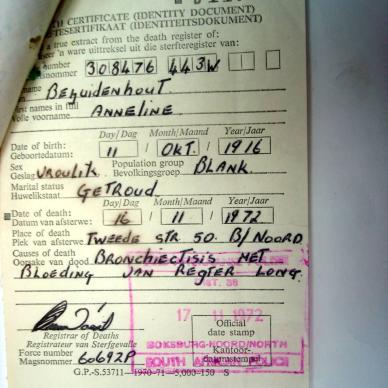 CERTIFICATE (IDENTITY DOCUMENT)
(IDENTITEITSDOKUMENT)
a true extract from the death register of:
'n ware uittreksel uit die sterfteregister van:
number
308476 443W
Bezuidenhout.
names in full
Volle voorname Anneline
Day/Dag Month/Maand Year/Jaar
Date of birth:
Geboortedatum: 11 / OKT. / 1916
Sex
Geslag Vroulik Population group
Bevolkingsgroep Blank.
Marital status
Huwelikstaat Getroud
Day/Dag Month/Maand Year/Jaar
Date of death:
Datum van afsterwe: 16 / 11 / 1972
Place of death
Plek van afsterwe Tweede Str 50. B/Noord
Causes of death
Oorsake van dood Bronchiectisis met
Bloeding van Regter Long.
17 11 1972
Registrar of Deaths
Registrateur van Sterfgevalle
Official
date stamp
BOKSBURG-NOORD/NORTH
Force number
Magsnommer 60692P
Kantoor-
datumstempel
SOUTH AFRICAN POLICE
G.P.-S.53711—1970-71—5,000-150 S